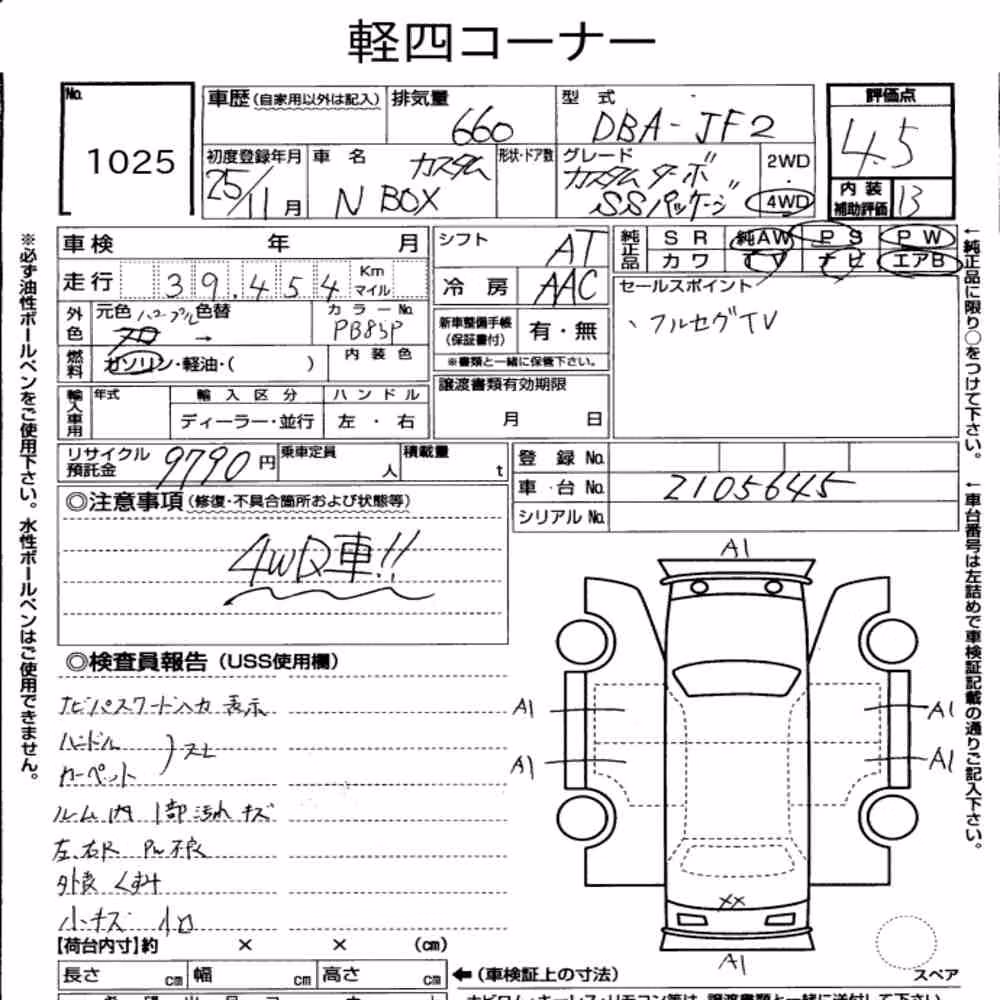 軽四コーナー
No. 1025
車歴(自家用以外は記入) 排気量 660
型式 DBA-JF2
評価点 4.5
内装補助評価 B
初度登録年月 25/11月
車名 N BOX カスタム
形状・ドア数
グレード カスタム ターボ SSパッケージ
2WD・4WD
車検 年 月
シフト AT
純正品 SR 純AW PS PW
カワ TV ナビ エアB
走行 39,454 Km マイル
冷房 AAC
セールスポイント
、フルセグTV
外色 元色 パープル 色替 →
カラーNo. PB85P
新車整備手帳(保証書付) 有・無
※書類と一緒に保管下さい。
燃料 ガソリン・軽油・( )
内装色
譲渡書類有効期限 月 日
輸入車用 年式 輸入区分 ハンドル
ディーラー・並行 左・右
リサイクル預託金 9790円
乗車定員 人
積載量 t
登録No.
車台No. 2105645
シリアルNo.
◎注意事項(修復・不具合箇所および状態等)
4WD車!!
◎検査員報告(USS使用欄)
ナビパスワード入力表示
ハンドル
カーペット )スレ
ルーム内 1部汚れ キズ
左、右R PW不良
外装 くすみ
小キズ 凹
A1
A1
A1
A1
A1
XX
A1
スペア
【荷台内寸】約 × × (cm)
長さ cm 幅 cm 高さ cm
←(車検証上の寸法)
※必ず油性ボールペンをご使用下さい。水性ボールペンはご使用できません。
←純正品に限り○をつけて下さい。
←車台番号は左詰めで車検証記載の通りご記入下さい。